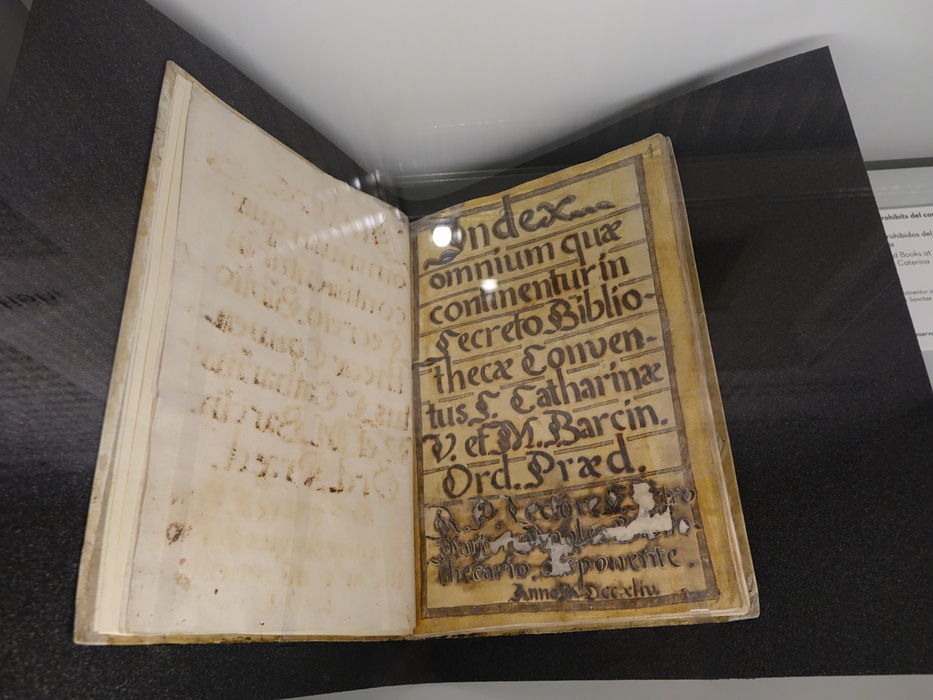 Index
omnium quæ
continentur in
Secreto Biblio-
thecæ Conven-
tus S. Catharinæ
V. et M. Barcin.
Ord. Præd.
R. P. Lectore F.
thecario disponente.
Anno M Dccxliv.
prohibits del con
rohibidos del
d Books at
Caterina